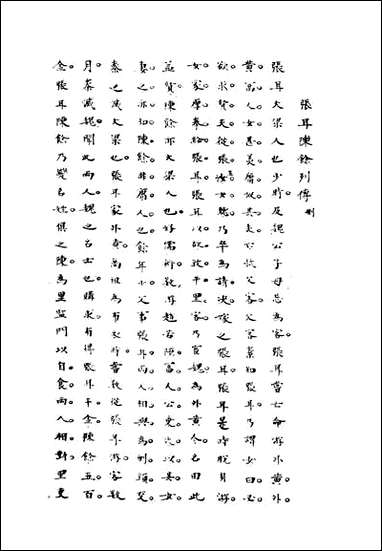 張耳陳餘列傳 刪
張耳大梁人也。少時。及魏公子毋忌為客。張耳嘗亡命游外黃。外
黃富人。女甚美。庸奴其夫。亡抵父客。父客素知張耳。乃謂女曰。必
欲求賢夫。從張耳。女聽。乃卒為請決。嫁之張耳。張耳是時脫身游。
女家厚奉給張耳。張耳以故致千里客。乃宦魏。為外黃令。名由此
益賢。陳餘亦大梁人也。好儒術。數游趙苦陘。富人公乘氏以其女
妻之。亦知陳餘非庸人也。餘年少。父事張耳。兩人相與為刎頸交。
秦之滅大梁也。張耳家外黃。高祖為布衣時。嘗數從張耳游。客數
月。秦滅魏。聞此兩人魏之名士也。購求有得張耳千金。陳餘五百
金。張耳陳餘乃變名姓。俱之陳。為里監門以自食。兩人相對。里吏